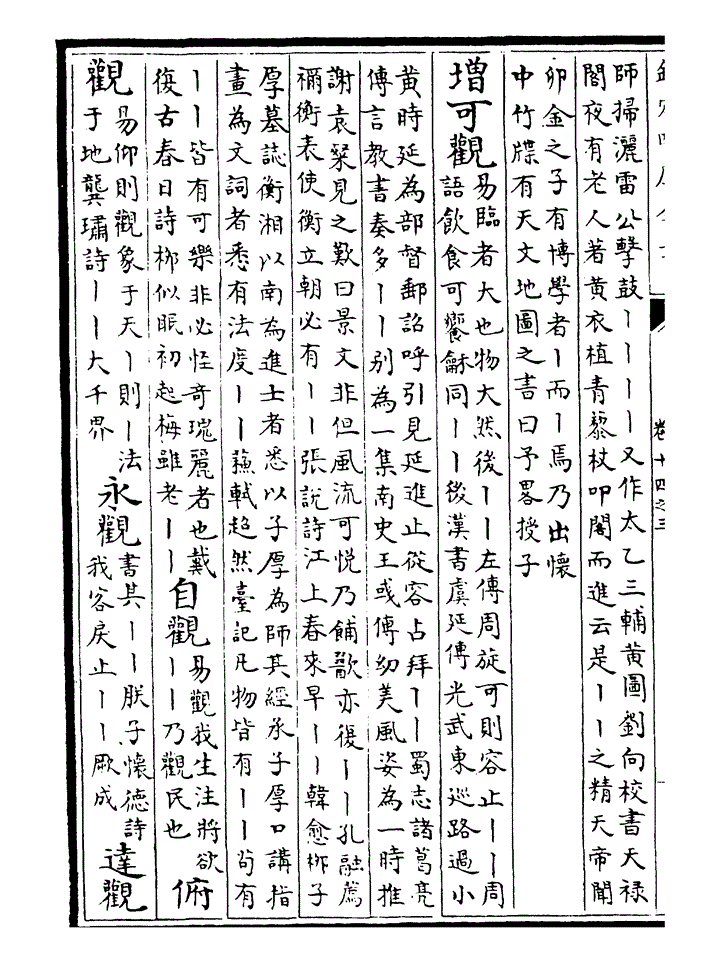 卷十四之三
師掃灑雷公擊鼓丨丨丨丨又作太乙三輔黃圖劉向校書天祿
閣夜有老人著黃衣植青藜杖叩閣而進云是丨丨之精天帝聞
卯金之子有博學者丨而丨焉乃出懷
中竹牒有天文地圖之書曰予畧授子
增可觀
易臨者大也物大然後丨丨左傳周旋可則容止丨丨周
語飲食可饗龢同丨丨後漢書虞延傳光武東巡路過小
黃時延為部督郵詔呼引見延進止從容占拜丨丨蜀志諸葛亮
傳言教書奏多丨丨别為一集南史王彧傳幼美風姿為一時推
謝袁粲見之歎曰景文非但風流可悅乃餔歠亦復丨丨孔融薦
禰衡表使衡立朝必有丨丨張說詩江上春來早丨丨韓愈栁子
厚墓誌衡湘以南為進士者悉以子厚為師其經承子厚口講指
畫為文詞者悉有法度丨丨蘇軾超然臺記凡物皆有丨丨茍有
丨丨皆有可樂非必怪奇瑰麗者也戴
復古春日詩栁似眠初起梅雖老丨丨
自觀
易觀我生注將欲
丨丨乃觀民也
俯
觀
易仰則觀象于天丨則丨法
于地龔璛詩丨丨大千界
永觀
書其丨丨朕子懷德詩
我客戾止丨丨厥成
達觀